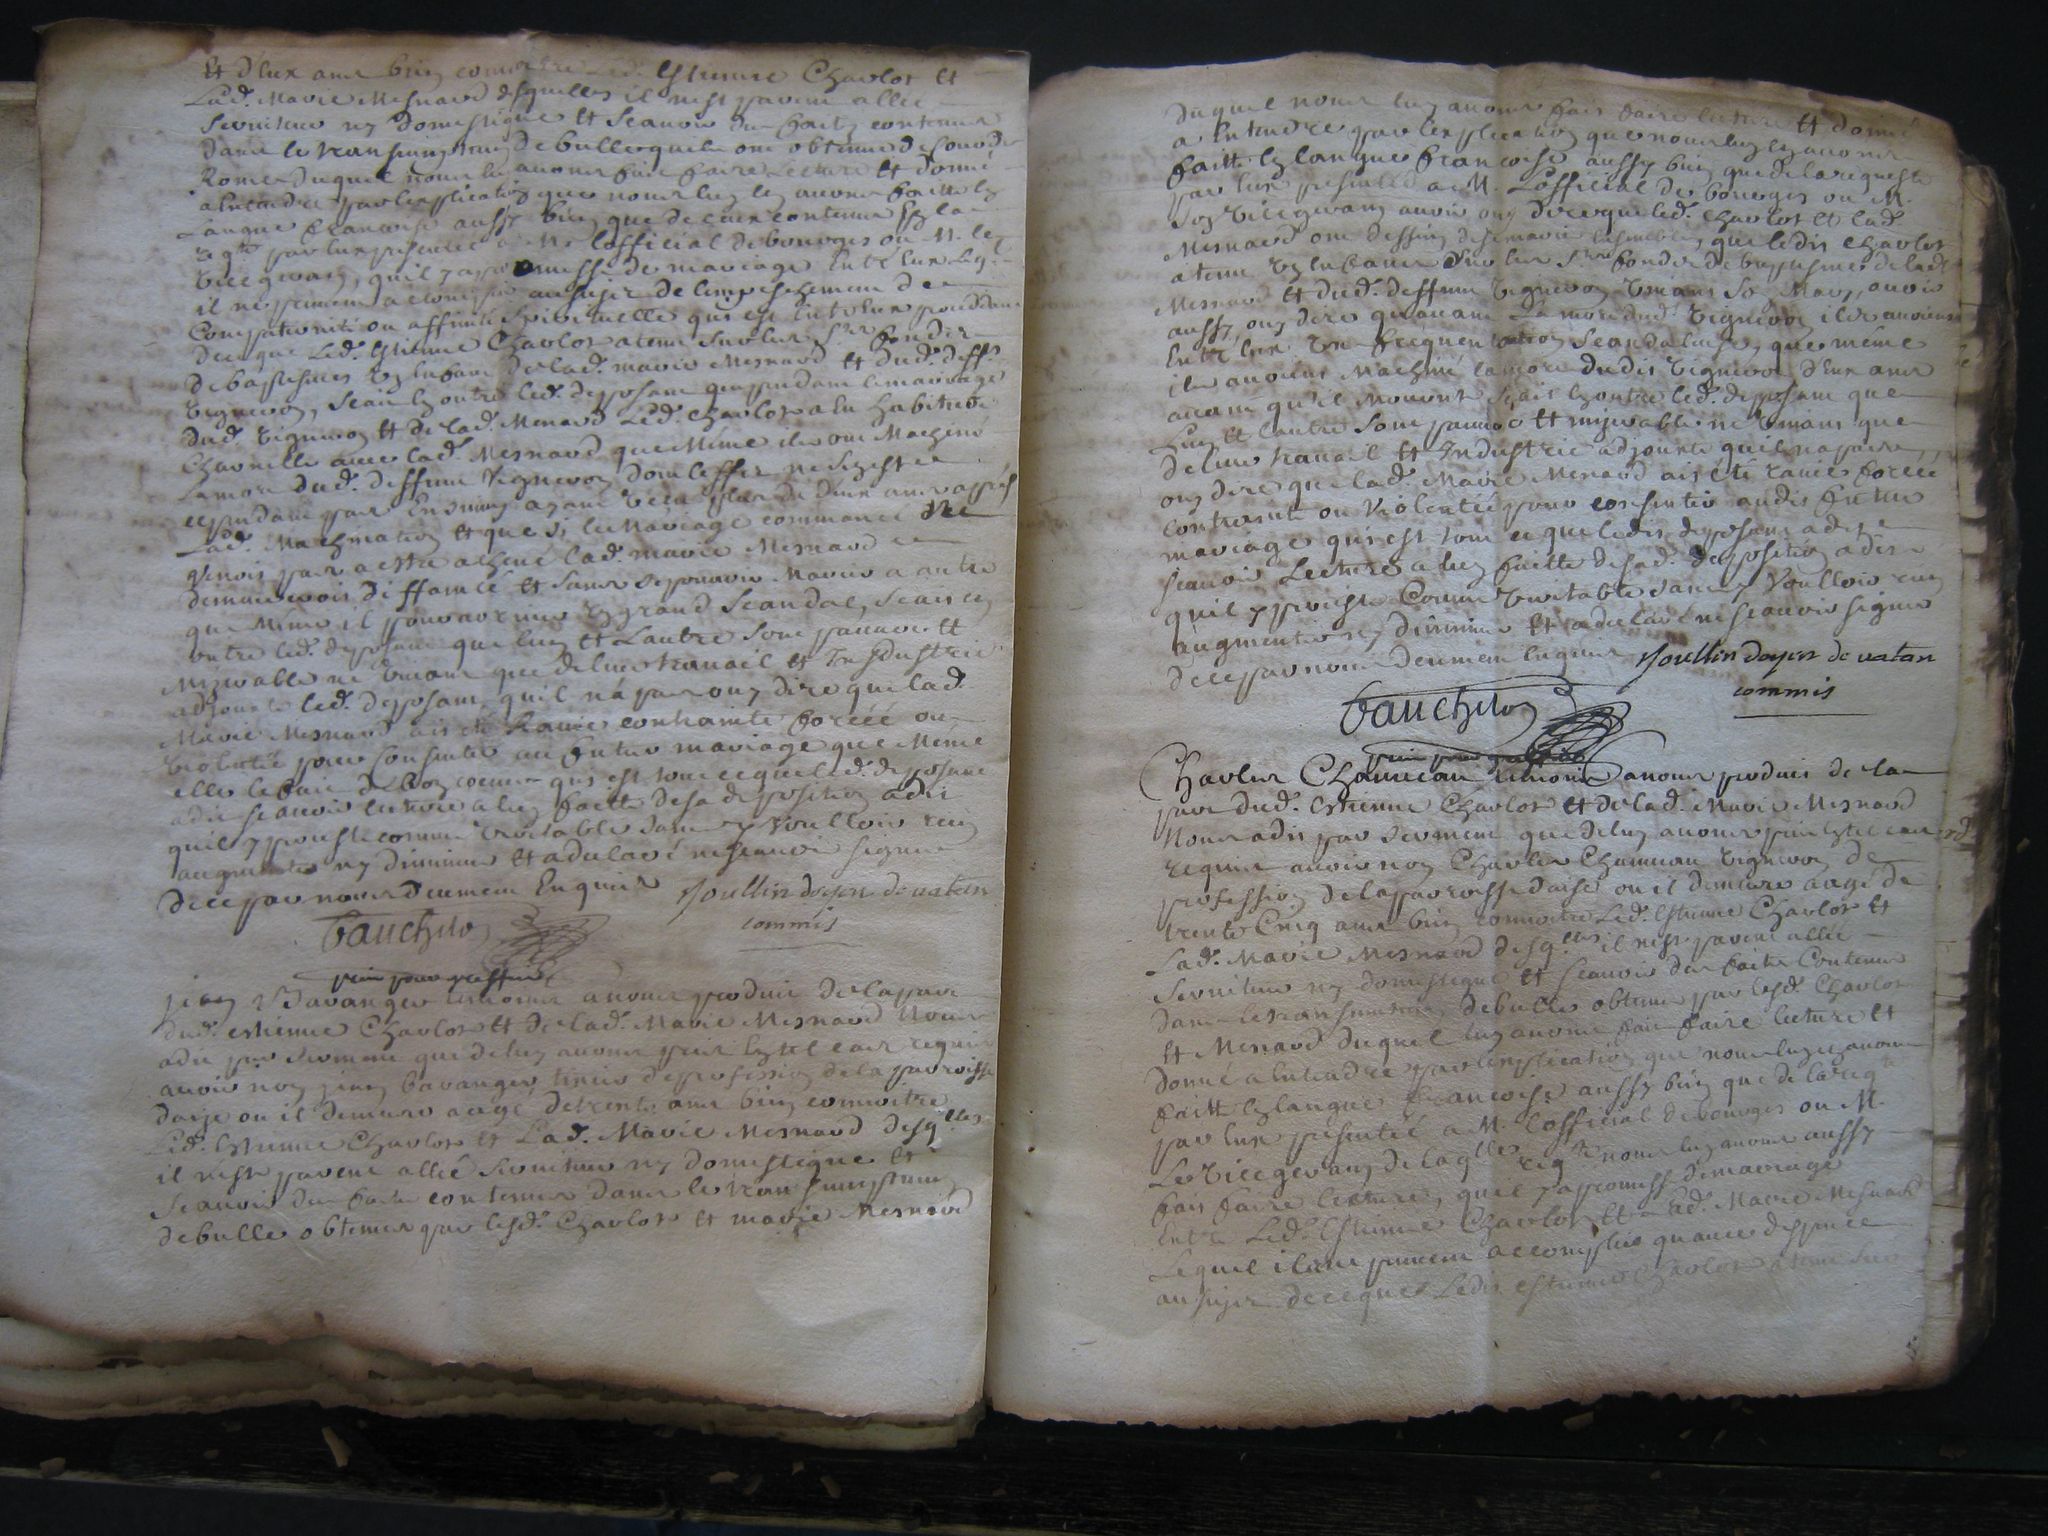 Et deux ans bien connoitre led. Estienne Charlot et
Lad. Marie Mesnard desquelles il nest parent allié
Serviteur ny domestique et Scauoir des faits contenus
dans le transsumptum de bulle quils ont obtenue de Cour de
Rome duquel nous luy auons fait faire Lecture et donné
a Entendre par lexplication que nous luy en auons faitte en
Langue francoise aussy bien que de ceux contenus En la
reqte par eux presentée a Mr Lofficial de bourges ou M. le
vicegerant, quil y a promesse de mariage Entre eux Lql.
il ne peuuent accomplir au sujet de lempeschement de
Compaternité ou affinité Spirituelle qui est Entre eux procedant
de ce que Led. Estienne Charlot a tenu sur les Sts fonds
de baptesmes un Enfant de lad. marie Mesnard et dud. deff.
vigneron, Scait en outre led. depposant que pendant le mariage
dud. vigneron et de lad. Menard Led. Charlot a eu habitude
Charnelle auec lad. Mesnard que Même ils ont Machiné
La mort dud. deffunt vigneron dont leffet ne sen est
cependant pas Ensuiuy ayant vécu plus de deux ans apres
Lad. Machination et que si le Mariage commancé ne
venoit pas a estre acheué lad. marie Mesnard
demeureroit diffamée et sans se pouuoir Marier a autre
que même il pouroit ariuer un grand Scandal, Scait en
outre led. deposant que luy et Lautre sont pauures et
Mizerable ne viuant que de leur trauail et Industrie
adjoute led. depposant, quil n'a pas ouy dire que lad.
Marie Mesnard ait eté Rauie contrainte forcée ou
violentée pour Consentir au futur mariage que Meme
elle le fait de bon coeur qui est tout ce que led. depposant
a dit scauoir lecture a luy faitte de sa deposition a dit
quil y persiste comme veritable sans y voulloir rien
augmenter ny diminuer et a declaré ne scauoir signer
de ce par nous deument Enquis Joullin doyen de vatan
commis
fauchero
prin pour greffier
jean Bavanger temoins a nous produit de la part
dud. estienne Charlot et de lad. Marie Mesnard Nous
a dit par serment que de luy auons pris en tel cas requis
auoir nom jean bavanger texier de profession de la parroisse
daize ou il demeure aagé de trente ans bien connoitre
Led. Estienne Charlot et Lad. Marie Mesnard desqlles
il nest parent allié Seruiteur ny domestique et
Scauoir des faits contenus dans le transsumptum
de bulle obtenus par lesd. Charlot et marie Mesnard
Duquel nous luy auons fait faire lecture et donné
a Entendre par lexplication que nous luy en auons
faitte En langue francoise aussy bien que de la requeste
par eux presentée a M. Lofficial de bourges ou M.
Son vicegerant auoir ouy dire que led. Charlot et lad.
Mesnard ont dessein de se marier Ensemble, que ledit Charlot
a tenu un Enfant sur les Sts fonds de baptesmes de lad.
Mesnard et dud. deffunt vigneron viuant So Mary, auoir
aussy ouy dire quauant La mort dud. vigneron ils auoient
Entre eux vne frequentation Scandaleuse, que même
ils auoient Machiné la mort dudit vigneron deux ans
auant qu'il Mourut Scait En outre led. depposant que
Luy et Lautre Sont pauure et mizerable ne viuant que
de leur trauail et Industrie adjoute quil na pas
ouy dire que lad. Marie Menard ait été rauie forcée
contrainte ou violentée pour consentir audit futur
mariage qui est tout ce que ledit depposant a dit
Scauoir Lecture a luy faitte de sad. depposition a dit
quil y persiste Comme veritable sans y Voulloir rien
augmenter ny diminuer et a declaré ne scauoir signer
de ce par nous deument Enquis Joullin doyen de vatan
commis
fauchero
prin pour greffier
Charles Chamreau temoins a nous produit de la
part dud. Estienne Charlot et de lad. Marie Mesnard
Nous a dit par serment que de luy auons pris En tel cas
requis auoir nom Charles Chamreau vigneron de
profession de la parroisse daise ou il demeure aagé de
trente Cinq ans bien connoitre Led. Estienne Charlot et
Lad. Marie Mesnard desqlles il nest parent allié
Seruiteur ny domestique et Scauoir des faits Contenus
dans le transsumptum de bulle obtenus par lesd. Charlot
et Menard duquel luy auons fait faire lecture et
donné a Entendre par lexplication que nous luy en auons
faitte En langue francoise aussy bien que de la reqte
par eux presentée a M. Lofficial de bourges ou M.
Le vicegerant de laqlle reqte nous luy auons aussy
fait faire lecture, quil y a promesse de mariage
Entre Led. Estienne Charlot et Lad. Marie Mesnard
Lequel ils ne peuuent accomplir quauec dispence
au sujet de ce que Ledit estienne Charlot a tenu sur